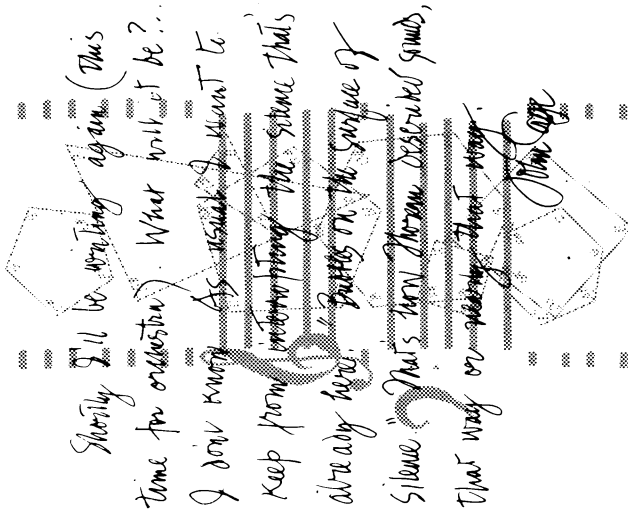 Shortly I'll be writing again (this
time for orchestra). What will it be?...
I don't know. As usual I want to
keep from interrupting the silence that's
already here. "Bubbles on the surface of
silence." That's how Thoreau described sounds,
that way or nearly that way.
John Cage